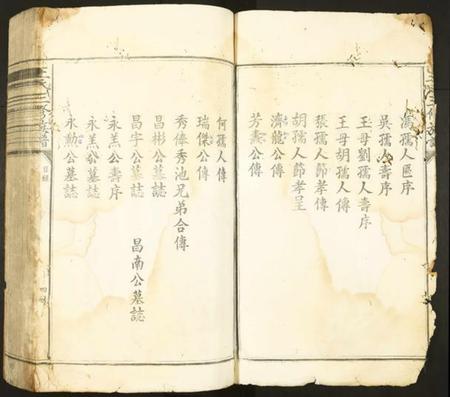 馮孺人匾序
吳孺人壽序
王母劉孺人壽序
王母胡孺人傳
張孺人節孝傳
胡孺人節孝呈
濟龍公傳
芳壽公傳
何孺人傳
瑞傑公傳
秀俸秀池兄弟合傳
昌彬公墓誌
昌宇公墓誌 昌南公墓誌
永羔公壽序
永羔公墓誌
永勲公墓誌
目錄